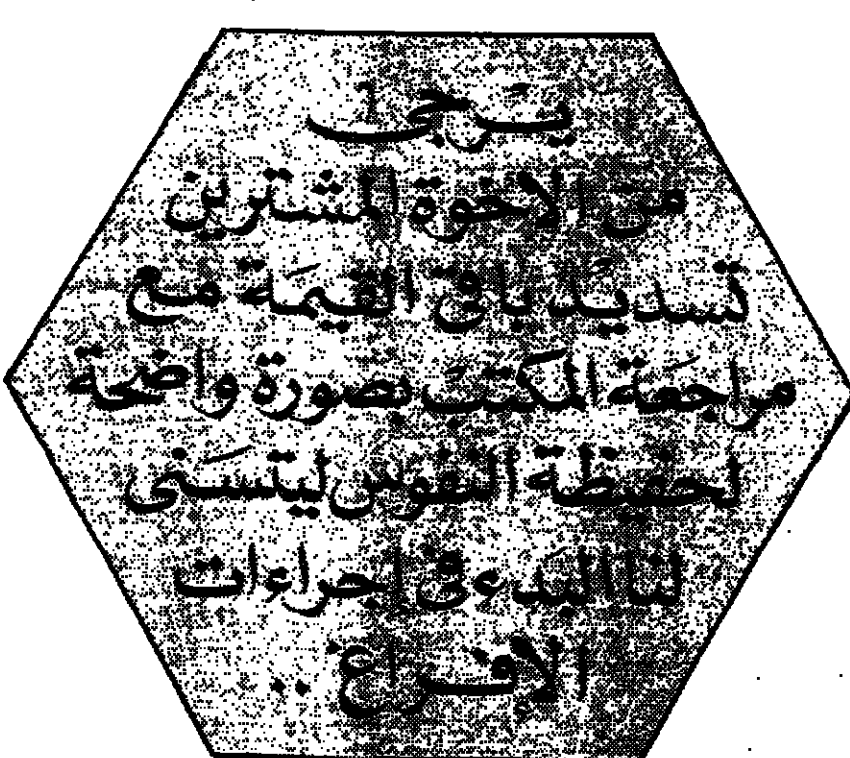 يرجى
من الاخوة المشترين
تسديد باقي القيمة مع
مراجعة المكتب بصورة واضحة
لحفيظة النفوس ليتسنى
لنا البدء في إجراءات
الإفراغ ..